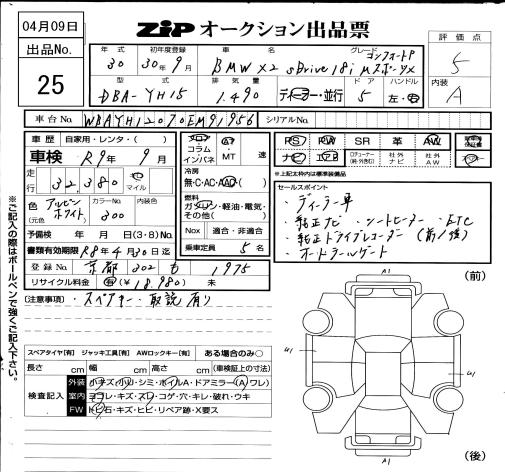 04月09日
出品No.
25
ZIP オークション出品票
評価点
5
内装
A
年式 初年度登録 車名 グレード
30 30年9月 BMW X2 sDrive18i MスポーツX
コンフォートP
型式 排気量 ドア ハンドル
DBA-YH15 1.490 ディーラー・並行 5 左・右
車台No. WBAYH12070EM91956 シリアルNo.
車歴 自家用・レンタ・( )
車検 R9年 9月
走行 32,380 km マイル
色 アルピンホワイト (元色) カラーNo. 300 内装色
予備検 年 月 日(3・8)No.
書類有効期限 R8年4月30日迄
登録No. 京都 302 も 1975
リサイクル料金 有(¥18,980) 未
コラム
インパネ
AT
MT 速
冷房
無・C・AC・AAC( )
燃料
ガソリン・軽油・電気・その他( )
Nox 適合・非適合
乗車定員 5名
PS PW SR 革 AW
ナビ エアB 社外ナビ 社外AW
※上記太枠内は標準装備品
セールスポイント
・ディーラー車
・純正ナビ ・シートヒーター ・ETC
・純正ドライブレコーダー(前/後)
・オートテールゲート
注意事項 ・スペアキー・取説有り
※ご記入の際はボールペンで強くご記入下さい。
スペアタイヤ[有] ジャッキ工具[有] AWロックキー[有] ある場合のみ○
長さ cm 幅 cm 高さ cm (車検証上の寸法)
検査記入
外装 小キズ・小凹・シミ・ホイルA・ドアミラー(A ワレ)
室内 ヨゴレ・キズ・スレ・コゲ・穴・キレ・破れ・ウキ
FW トビ石・キズ・ヒビ・リペア跡・X要ス
(前)
A1
U1
U1
A1
(後)